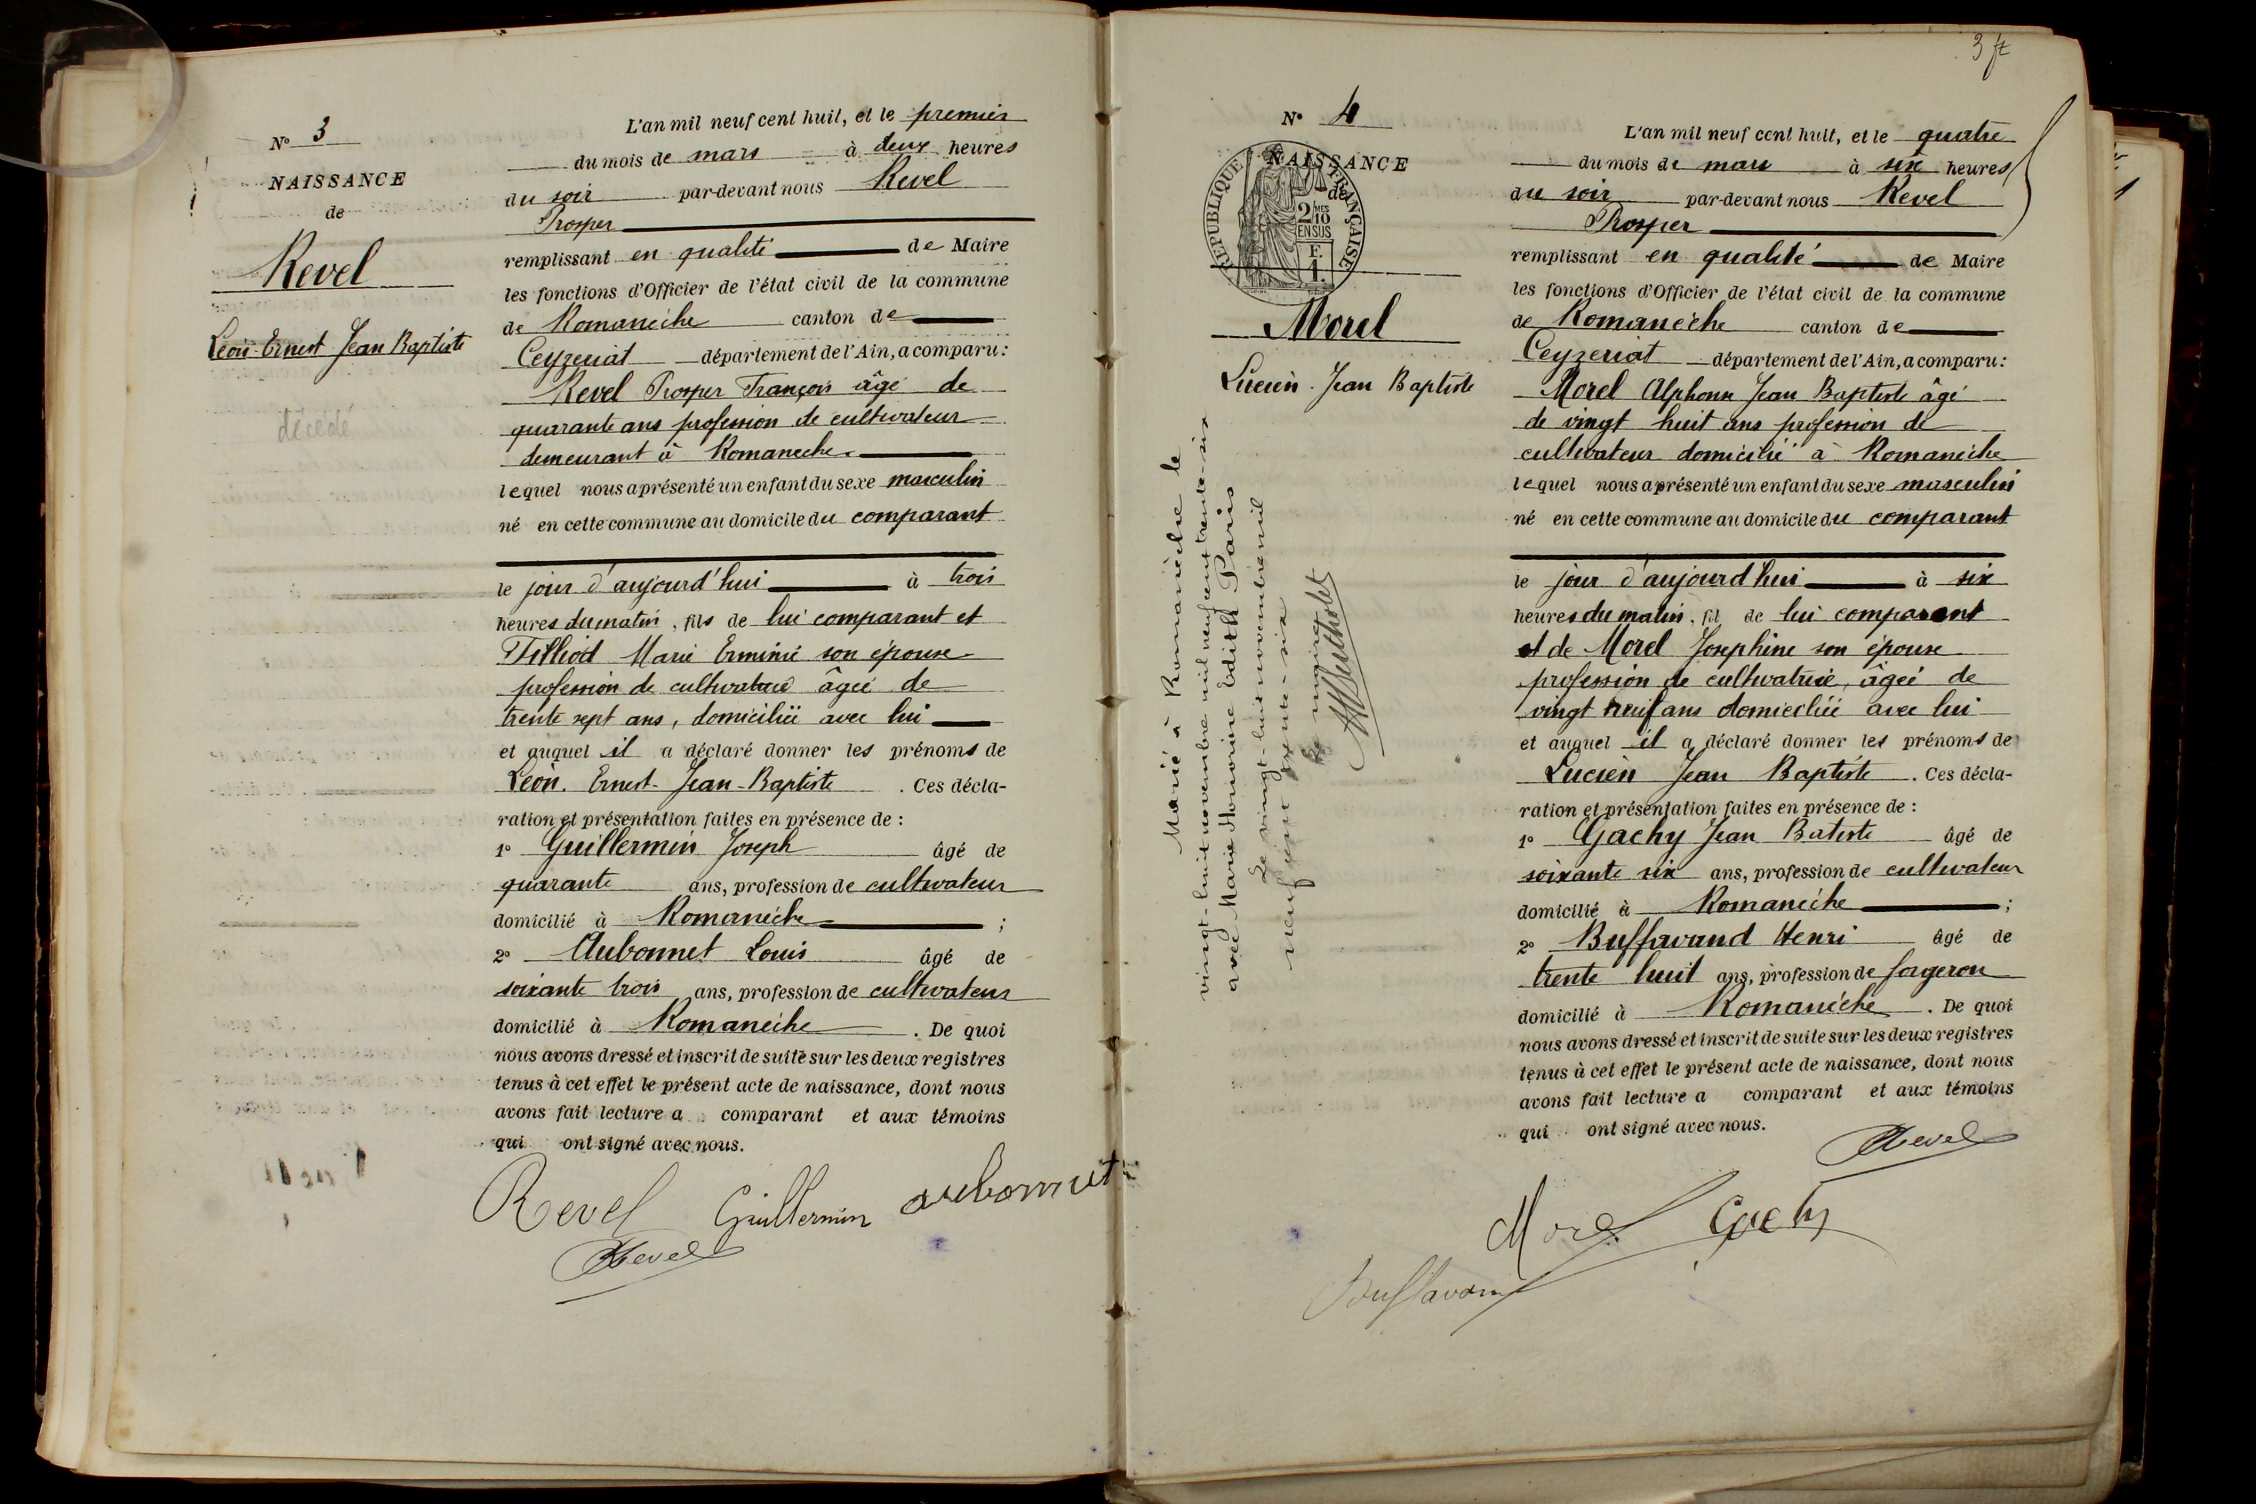 N° 3
NAISSANCE
de
Revel
Léon Ernest Jean Baptiste
décédé
L'an mil neuf cent huit, et le premier
du mois de mars à deux heures
du soir par-devant nous Revel
Prosper
remplissant en qualité de Maire
les fonctions d'Officier de l'état civil de la commune
de Romanèche canton de
Ceyzeriat département de l'Ain, a comparu:
Revel Prosper François âgé de
quarante ans profession de cultivateur
demeurant à Romaneche.
lequel nous a présenté un enfant du sexe masculin
né en cette commune au domicile du comparant
le jour d'aujourd'hui à trois
heures du matin, fils de lui comparant et
Tilliod Marie Erminie son épouse
profession de cultivatrice âgée de
trente sept ans, domiciliée avec lui
et auquel il a déclaré donner les prénoms de
Léon. Ernest-Jean-Baptiste. Ces décla-
ration et présentation faites en présence de :
1° Guillermin Joseph âgé de
quarante ans, profession de cultivateur
domicilié à Romanèche ;
2° Aubonnet Louis âgé de
soixante trois ans, profession de cultivateur
domicilié à Romanèche. De quoi
nous avons dressé et inscrit de suite sur les deux registres
tenus à cet effet le présent acte de naissance, dont nous
avons fait lecture a comparant et aux témoins
qui ont signé avec nous.
Revel Guillermin aubonnet
Revel
3
N° 4
NAISSANCE
de
REPUBLIQUE FRANÇAISE
2/10 MES
EN SUS
F.
1.
Morel
Lucien. Jean Baptiste
Marié à Romanèche le
vingt-huit novembre mil neuf cent trente-six
avec Marie Honorine Edith Paris
Le vingt-huit novembre mil
neuf cent trente-six
Le maire
L'an mil neuf cent huit, et le quatre
du mois de mars à six heures
du soir par-devant nous Revel
Prosper
remplissant en qualité de Maire
les fonctions d'Officier de l'état civil de la commune
de Romanèche canton de
Ceyzeriat département de l'Ain, a comparu:
Morel Alphonse Jean Baptiste âgé
de vingt huit ans profession de
cultivateur domicilié à Romanèche
lequel nous a présenté un enfant du sexe masculin
né en cette commune au domicile du comparant
le jour d'aujourd'hui à six
heures du matin, fil de lui comparant
et de Morel Josephine son épouse
profession de cultivatrice, âgée de
vingt neuf ans domiciliée avec lui
et auquel il a déclaré donner les prénoms de
Lucien Jean Baptiste. Ces décla-
ration et présentation faites en présence de :
1° Gachy Jean Batiste âgé de
soixante six ans, profession de cultivateur
domicilié à Romanèche ;
2° Buffavand Henri âgé de
trente huit ans, profession de forgeron
domicilié à Romanèche. De quoi
nous avons dressé et inscrit de suite sur les deux registres
tenus à cet effet le présent acte de naissance, dont nous
avons fait lecture a comparant et aux témoins
qui ont signé avec nous.
Revel
Morel Gachy
Buffavand